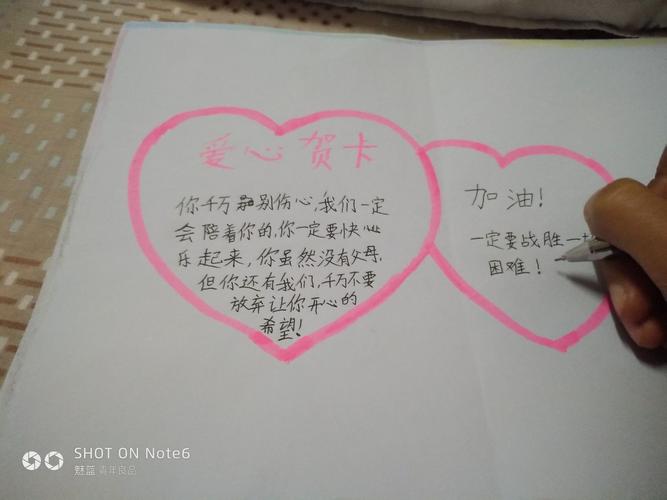 爱心贺卡
你千万别伤心,我们一定
会陪着你的,你一定要快心
乐起来,你虽然没有父母,
但你还有我们,千万不要
放弃让你开心的
希望!
加油!
一定要战胜一
困难!
SHOT ON Note6
魅蓝 青年良品